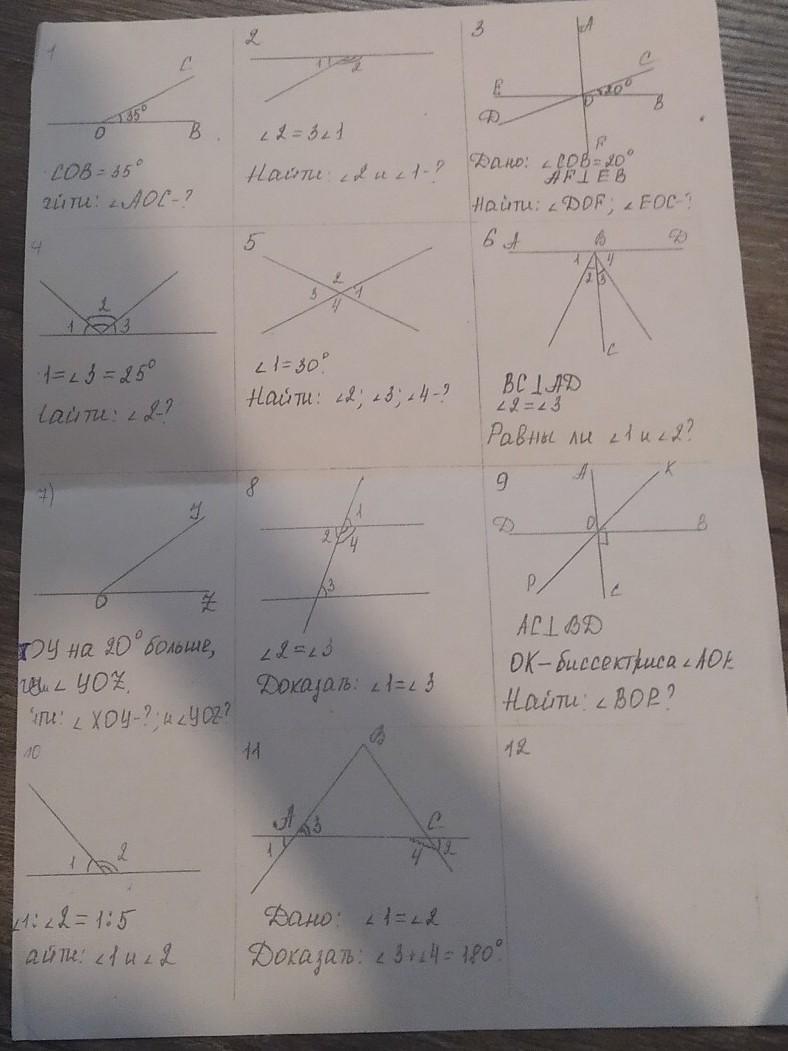 1
C
35°
O
B
COB = 35°
йти: ∠AOC-?
2
1
2
∠2 = 3∠1
Найти: ∠2 и ∠1-?
3
A
C
E
O
20°
B
D
F
Дано: ∠COB = 20°
AF⊥EB
Найти: ∠DOF; ∠EOC-?
4
2
1
3
1=∠3 = 25°
айти: ∠2-?
5
2
3
1
4
∠1 = 30°.
Найти: ∠2; ∠3; ∠4-?
6
A
B
D
1
4
2
3
C
BC⊥AD
∠2=∠3
Равны ли ∠1 и ∠2?
7)
Y
O
Z
OY на 20° больше,
∠ YOZ.
ти: ∠ XOY-?; и ∠YOZ?
8
1
2
4
3
∠2=∠3
Доказать: ∠1=∠3
9
A
K
D
O
B
P
C
AC⊥BD
OK - биссектриса ∠AOB
Найти: ∠BOP?
10
1
2
∠1:∠2 = 1:5
айти: ∠1 и ∠2
11
B
A
3
C
1
4
2
Дано: ∠1 = ∠2
Доказать: ∠3+∠4 = 180°.
12